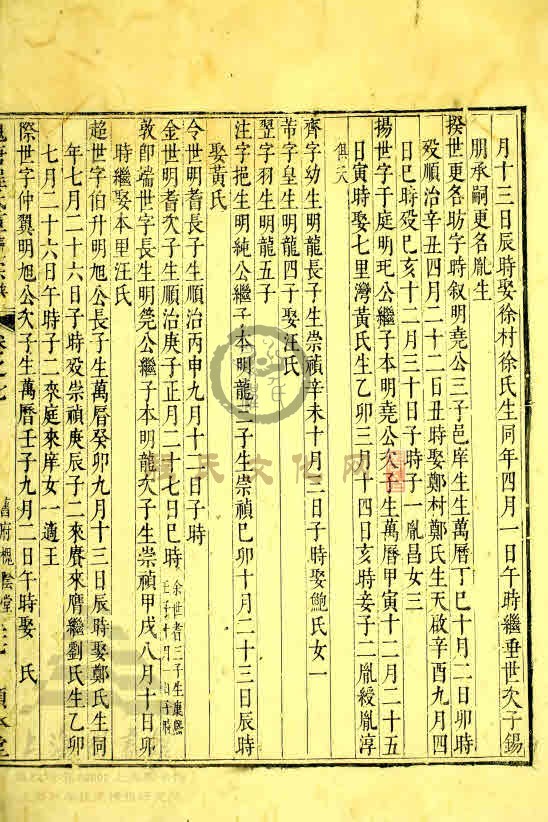 月十三日辰時娶徐村徐氏生同年四月一日午時繼垂世次子錫
朋承嗣更名胤生
揆世更名昉字時叙明堯公三子邑庠生生萬曆丁巳十月二日卯時
歿順治辛丑四月二十二日丑時娶鄭村鄭氏生天啟辛酉九月四
日巳時歿巳亥十二月三十日子時子一胤昌女三
揚世字于庭明玘公繼子本明堯公次子生萬曆甲寅十二月二十五
日寅時娶七里灣黃氏生乙卯三月十四日亥時妾子二胤綬胤淳
俱夭
齊字幼生明龍長子生崇禎辛未十月二日子時娶鮑氏女一
芾字皇生明龍四子娶汪氏
翌字羽生明龍五子
注字挹生明純公繼子本明龍三子生崇禎巳卯十月二十三日辰時
娶黃氏
令世明耆長子生順治丙申九月十二日子時
金世明耆次子生順治庚子正月二十七日巳時 余世耆三子生康熙壬子十月
敦卽端世字長生明箢公繼子本明龍次子生崇禎甲戌八月十日卯
時繼娶本里汪氏
超世字伯升明旭公長子生萬曆癸卯九月十三日辰時娶鄭氏生同
年七月二十六日子時歿崇禎庚辰子二來賡來膺繼劉氏生乙卯
七月二十六日午時子二來庭來庠女一適王
際世字仲翼明旭公次子生萬曆壬子九月二日午時娶 氏